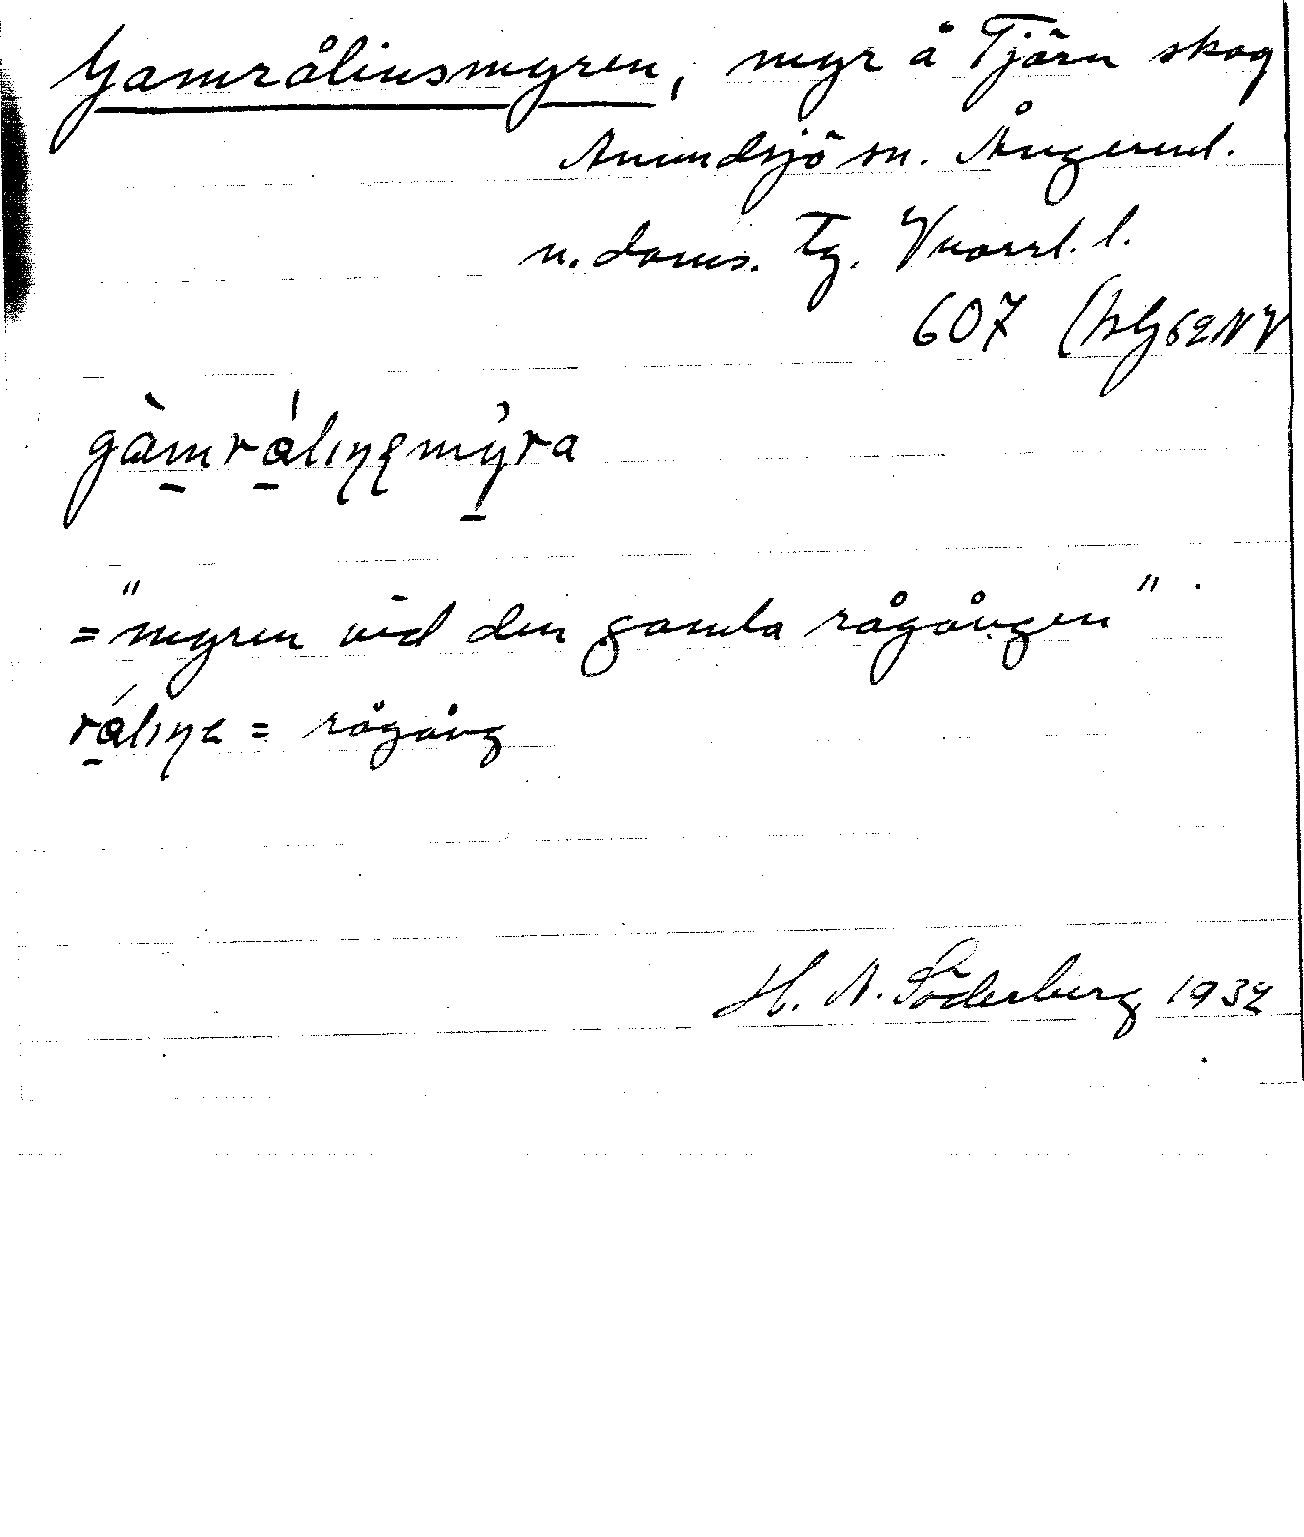 Gamrålinsmyren, myr å Tjärn skog
Anundsjö sn. Ångerml.
n. doms. Tg. Vnorrl. l.
607 (hG62NV
gàmrálıŋɛmy̓ra
="myren vid den gamla rågången".
rálıŋɛ = rågång
H. A. Söderberg 1932